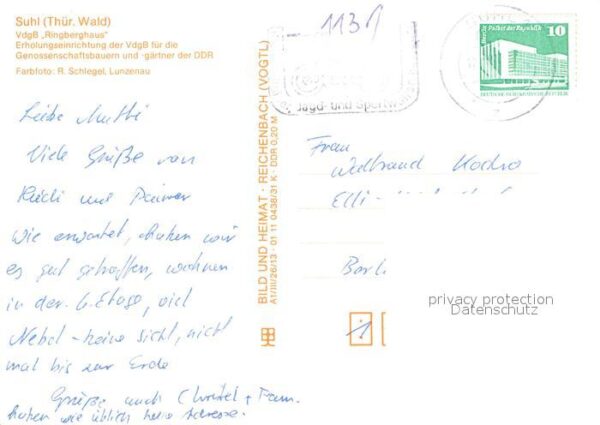 Suhl (Thür. Wald)
VdgB „Ringberghaus"
Erholungseinrichtung der VdgB für die
Genossenschaftsbauern und -gärtner der DDR
Farbfoto: R. Schlegel, Lunzenau
Liebe Mutti
Viele Grüße von
Rüdi und
wie erwartet, haben wir
es gut getroffen, wohnen
in der 6. Etage, viel
Nebel - keine Sicht, nicht
mal bis zur Erde
Grüße auch Christel + Fam.
haben wie üblich keine Adresse.
BILD UND HEIMAT · REICHENBACH (VOGTL)
A1/III/26/13 · 01 11 0438/31 K · DDR 0,20 M
113
Jagd- und Sportw
Palast der Republik
10
DEUTSCHE DEMOKRATISCHE REPUBLIK
Frau
Elli
Berl
1
privacy protection
Datenschutz